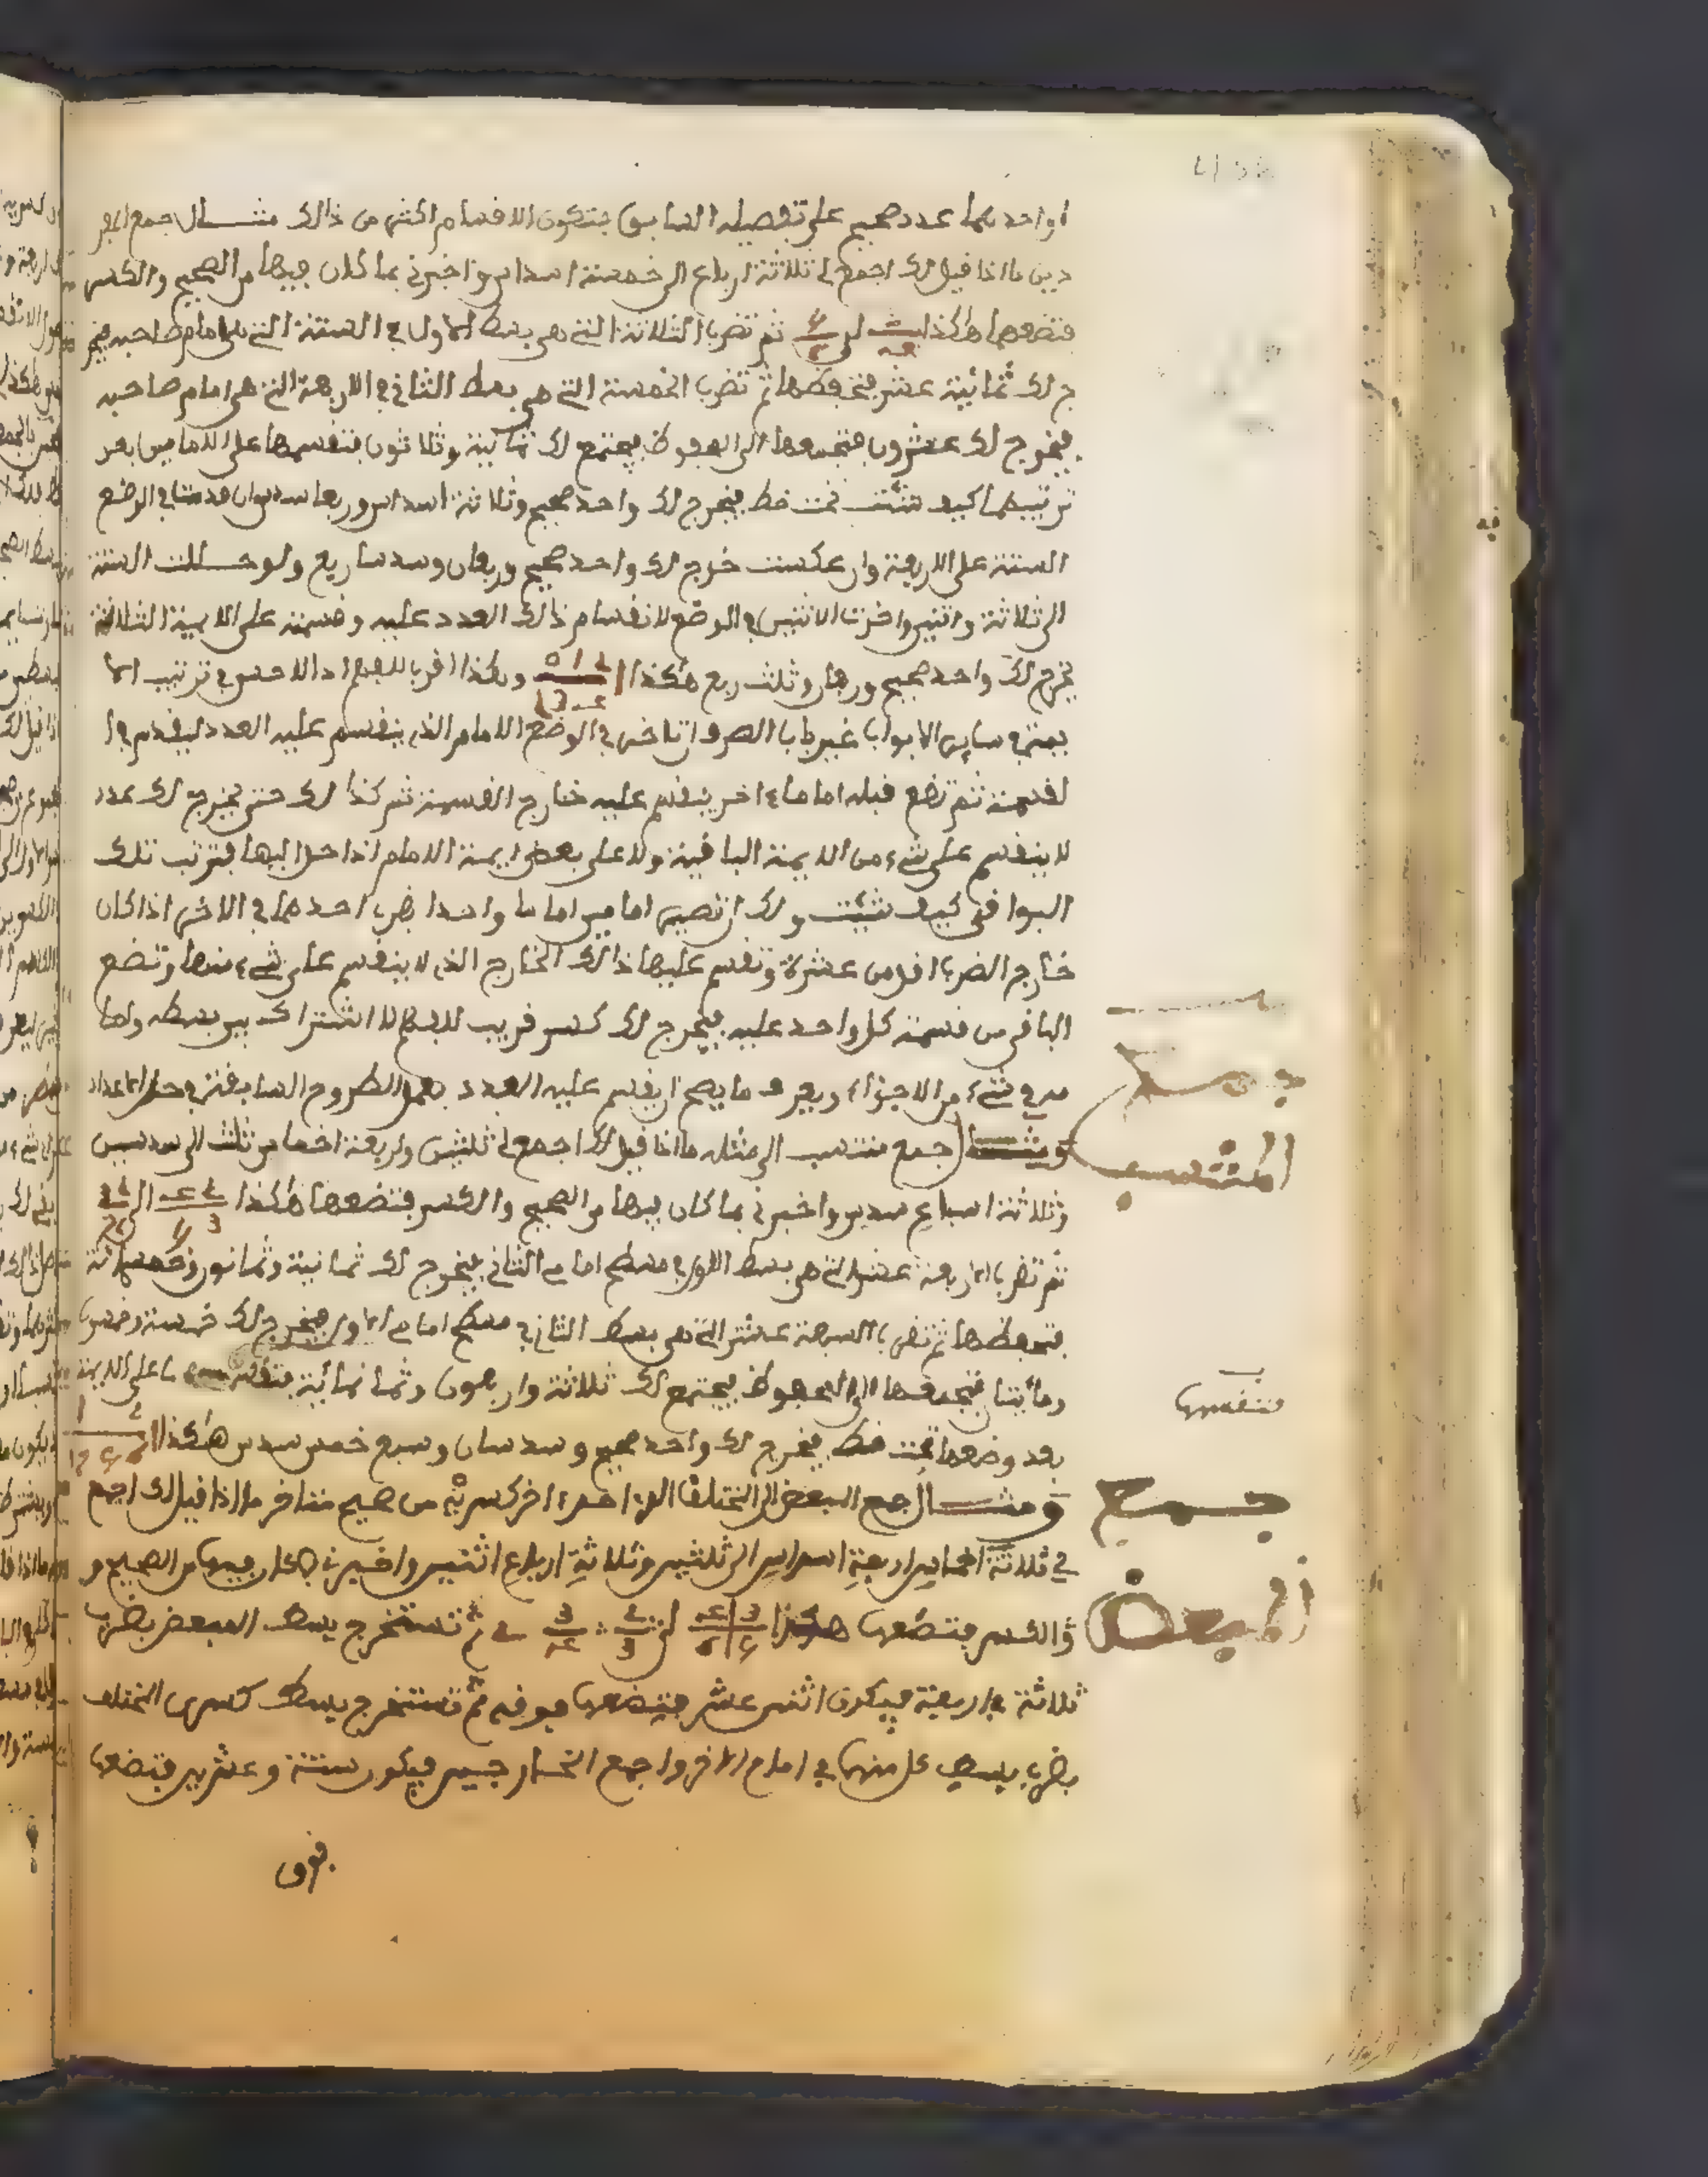 او احدهما عدد صحيح على تفصيله السابق فتكون الاقسام اكثر من ذالك مثال جمع المفر
دين ما اذا قيل لك اجمع لي ثلاثة ارباع الى خمسة اسداس واخبرني بما كان فيها من الصحيح والكسر
فتضعهما هكذا الى ثم تضرب الثلاثة التي هي بسط الاول في الستة التي هي امام صاحبه فيخر
ج لك ثمانية عشر فتحفظها ثم تضرب الخمسة التي هي بسط الثاني في الاربعة التي هي امام صاحبه
فيخرج لك عشرون فتجمعها الى المحفوظ فيجتمع لك ثمانية وثلاثون فتقسمها على الامامين بعد
ترتيبهما كيف شئت تحت خط فيخرج لك واحد صحيح وثلاثة اسداس وربعا سدس ان قدمت في الوضع
الستة على الاربعة وان عكست خرج لك واحد صحيح وربعان وسدسا ربع ولو حللت الستة
الى ثلاثة واثنين واخرت الاثنين في الوضع لانقسام ذالك العدد عليه وقسمته على الايمة الثلاثة
يخرج لك واحد صحيح وربعان وثلث ربع هكذا وهكذا اقرب للفهم اذ الاحسن في ترتيب الا
يمة في ساير الابواب غير باب الصرف ان تاخر في الوضع الامام الذي ينقسم عليه العدد ليقدم في ا
لقسمة ثم تضع قبله اماما ءاخر ينقسم عليه خارج القسمة ثم كذا لك حتى يخرج لك عدد
لا ينقسم على شيء من الايمة الباقية ولا على بعض ايمة الامام اذا حل اليها فترتب تلك
البواقي كيف شئت ولك ان تصير امامين اماما واحدا بضرب احدهما في الاخر اذا كان
خارج الضرب اقل من عشرة وتقسم عليها ذالك الخارج الذي لا ينقسم على شيء منها وتضع
الباقي من قسمة كل واحد عليه فيخرج لك كسر قريب للفهم لا اشتراك بين بسطه واما
مه في شيء من الاجزاء ويعرف ما يصح ان يقسم عليه العدد بعمل الطروح السابقة في حل الاعداد
ومثال جمع منتسب الى مثله ما اذا قيل لك اجمع لي ثلثين واربعة اخماس ثلث الى سدسين
وثلاثة اسباع سدس واخبرني بما كان فيها من الصحيح والكسر فتضعها هكذا الى
ثم تضرب الاربعة عشر التي هي بسط الاول في مسطح امامي الثاني فيخرج لك ثمانية وثمانون وخمسمائة
فتحفظها ثم تضرب السبعة عشر التي هي بسط الثاني في مسطح امامي الاول فيخرج لك خمسة وخمسون
ومائتان فتجمعها الى المحفوظ فيجتمع لك ثلاثة واربعون وثمانمائة فتقسمها على الايمة
بعد وضعها تحت خط فيخرج لك واحد صحيح وسدسان وسبع خمس سدس هكذا
ومثال جمع المبعض الى المختلف الذي احد اخر كسريه من صحيح متاخر ما اذا قيل لك اجمع
لي ثلاثة اخماس اربعة اسداس الى ثلثين وثلاثة ارباع اثنين واخبرني بما كان فيها من الصحيح و
والكسر فتضعها هكذا الى ثم تستخرج بسط المبعض بضرب
ثلاثة في اربعة فيكون اثنى عشر فتضعها فوقه ثم تستخرج بسط كسرى المختلف
بضرب بسط كل منهما في امام الاخر واجمع الخارجين فيكون ستة وعشرين فتضعها
فوق
جمع
المنتسب
فتقسمها
جمع
المبعض